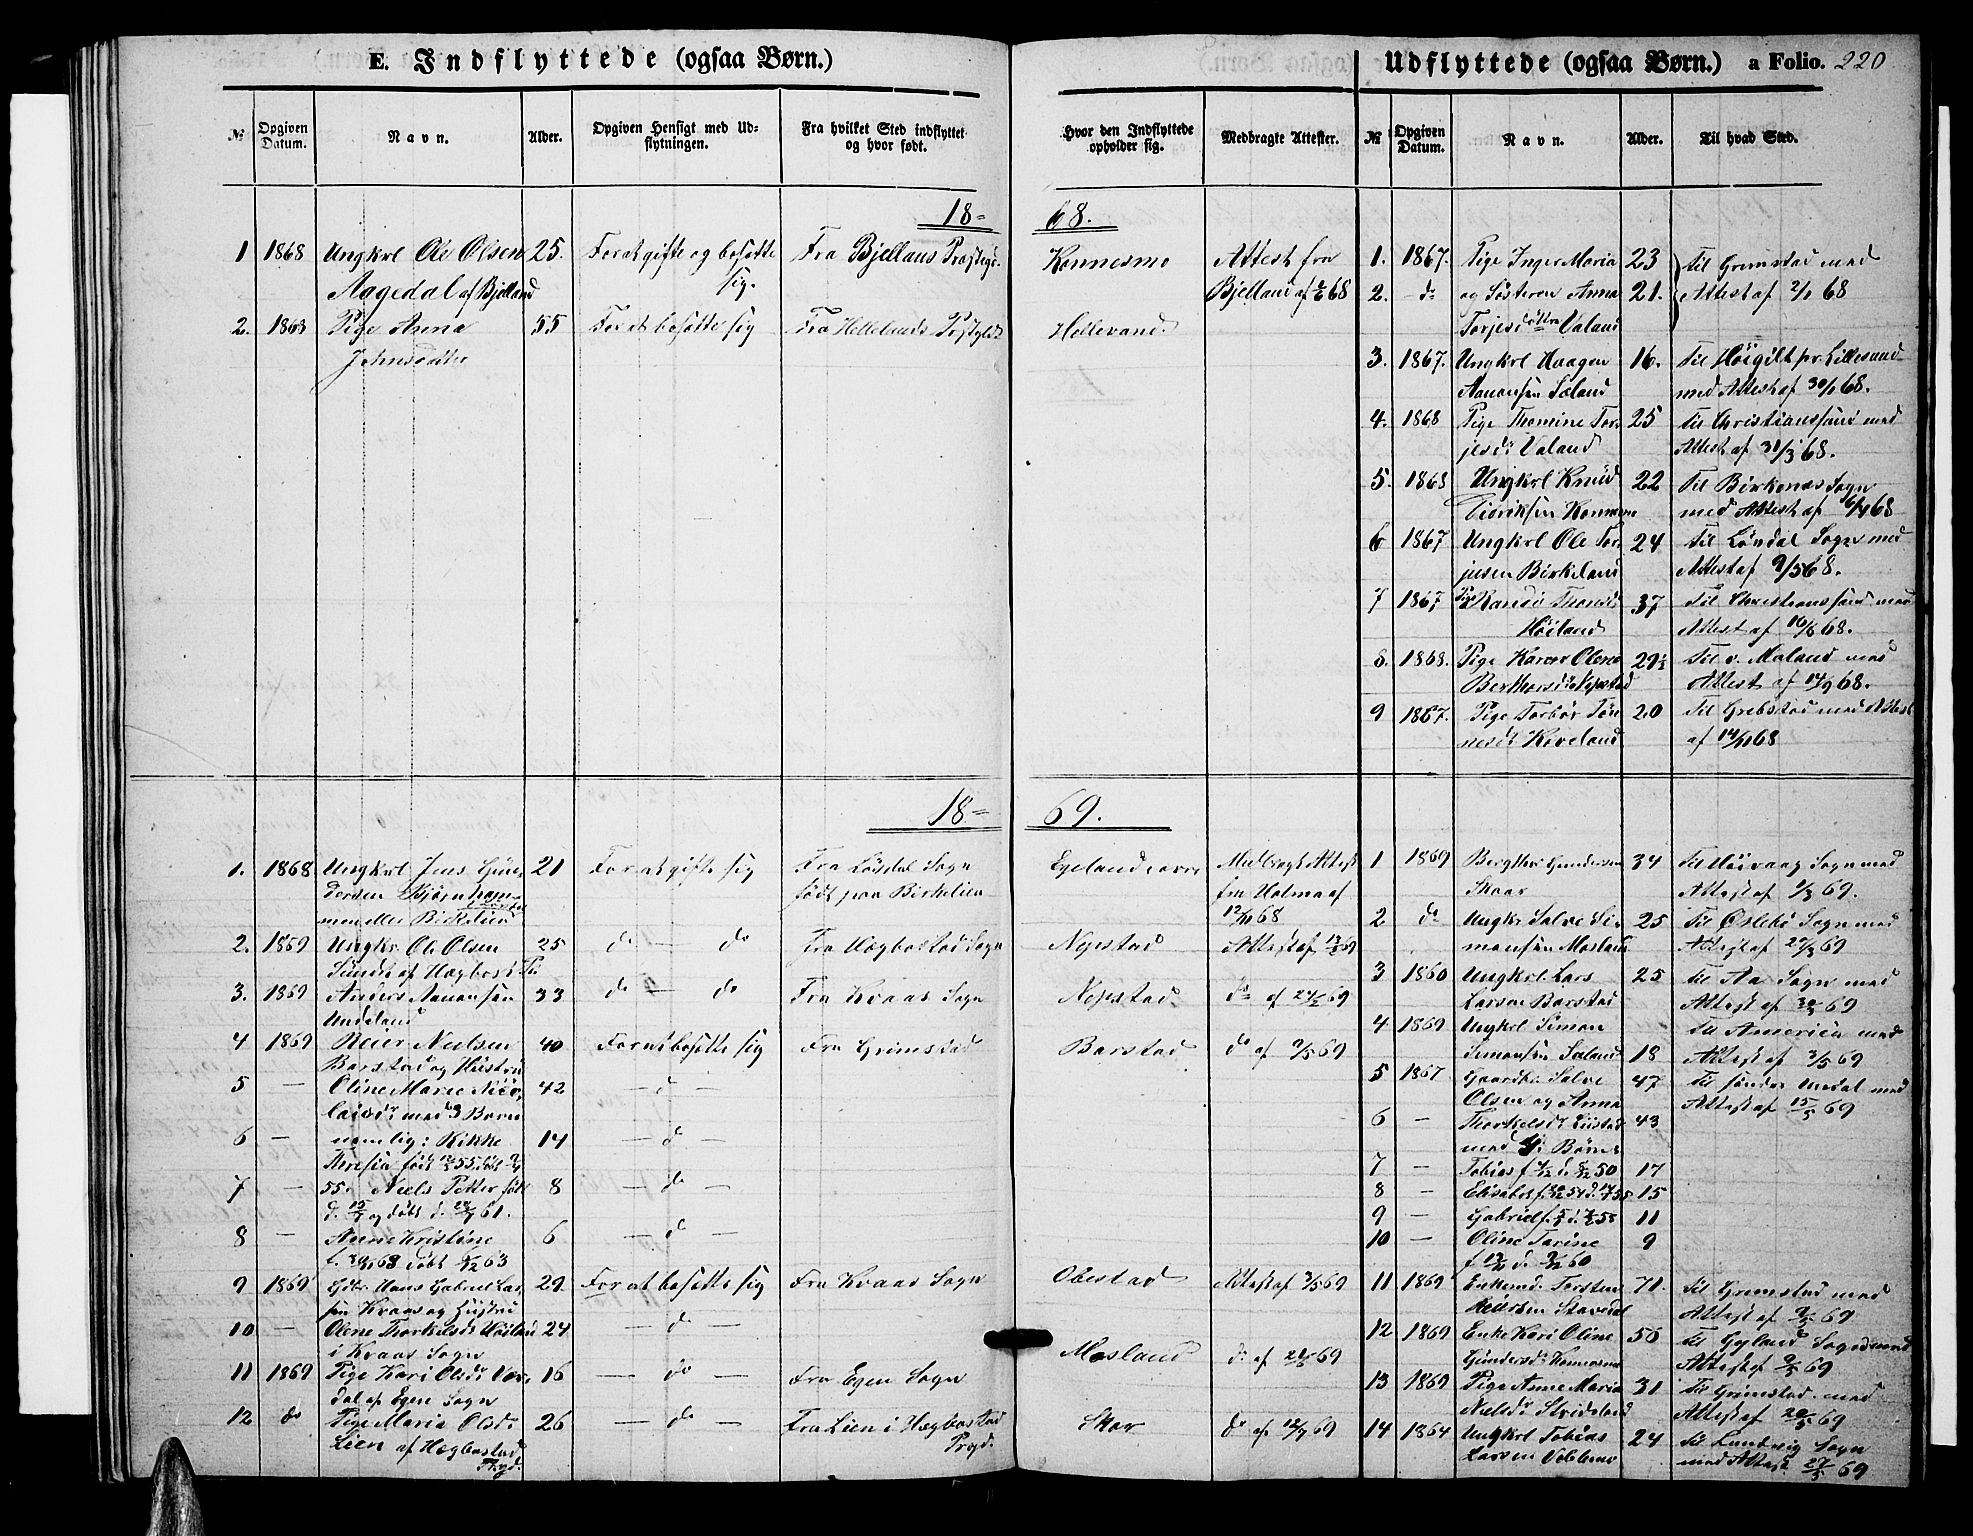 E. Indflyttede (ogsaa Børn.)
№ Opgiven Datum. Navn. Alder. Opgiven Hensigt med Udflytningen. Fra hvilket Sted indflyttet og hvor født.
Hvor den Indflyttede opholder sig. Medbragte Attester.
18=68.
1 1868 Ungkrl Ole Olsen 25. For at gifte og bosætte Fra Bjellans Præstegj. Konnesmo Attest fra
Aagedal af Bjelland sig. Bjelland af 68
2. 1868 Pige Anna 55 For at bosætte sig Fra Hellelands Hollevand
Johnsdatter
18=69.
1. 1868 Ungkrl Jens Gun- 21 For at gifte sig Fra Løvdal Sogn Egeland Medbragt Attest
dersen født paa Birkelien fra Holma af
Birkelien 12/11 68
2. 1869 Ungkr. Ole Olsen 25 do — do Fra Hægbostad Sogn Nøpstad Attest af 69
af Hægbost
3. 1869 Anders Aanonsen 33 do — do Fra Kvaas Sogn Nøpstad do af 69
Undeland
4 1869 Reier Nielsen 40 For at bosætte sig Fra Grimstad Barstad do af 69
Barstad og Hustru
5 — Oline Marie Nico- 42 — d —
laisdr med 3 Børn
6 — nemlig: Kikke 14 — d —
Theresia født 55 døbt
7 — 55. Niels Petter født 8 — d —
d. og døbt d. 61.
8 — Anne Kristine 6 — d —
døbt 63
9 1869 Hans Gabriel Lar- 29. For at bosætte sig Fra Kvaas Sogn Obestad Attest af 3/5 69
sen Kvaas og Hustru
10 — Olene Thorkelsdr 24 — d —
i Kvaas Sogn
11 1869 Pige Kari Olsdr 16 — do — Fra Egen Sogn Mosland do af 69
dal af Egen Sogn
12 do Pige Maria Olsdr 26 — do — Fra Lien i Hægbostad Skor do af 69
Lien af Hægbostad Prgd.
Prgd.
Udflyttede (ogsaa Børn.) a Folio. 220
№ Opgiven Datum. Navn. Alder. Til hvad Sted.
1. 1867. Pige Inger Maria 23 Til Grimstad med
2. — do og Søsteren Anna 21. Attest af 2/1 68
Torjesdøttre Valand
3. 1867. Ungkrl Haagen 16. Til Høigilt pr. Lillesand
Aanonsen Sæland med Attest af 30/1 68.
4. 1868 Pige Thomine Tor- 25 Til Christianssand med
jesdr Valand Attest af 31/3 68.
5. 1868 Ungkrl Knud 22 Til Birkenæs Sogn
med Attest af 6/4 68
6 1867 Ungkrl Ole Tor- 24 Til Løvdal Sogn med
jusen Birkeland Attest af 9/5 68.
7 1867 Pige Randi 37 Til Christianssand med
Høiland Attest af 16/6 68.
8. 1868. Pige Karen Olene 29½ Til ø. Moland med
Berthorsdr Nøpstad Attest af 14/9 68.
9 1867. Pige Torbør Tøn- 20 Til Grebstad med Attest
nesdr Høveland af 14/11 68
1 1869 Gundersen 34 Til Høivaag Sogn med
Skaar Attest af 69.
2 do Ungkr. Salve Si- 25 Til Øslebø Sogn med
monsen Mosland Attest af 69
3 1860 Ungkrl. Lars 25 Til Aa Sogn med
Larsen Barstad Attest af 69
4 1869 Ungkrl Simon Til America med
Simonsen Sæland 18 Attest af 3/5 69
5 1867 Gaardbr Salve 47 Til søndre Undal med
Olsen og Anna Attest af 15/5 69
6 — Thorkelsdr 43
med 4 Børn
7 — Tobias 50 17
8 — Elisabet 15
9 — Gabriel 11
10 — Oline Tarine 9
60
11 1869 Enkemd Torsten 71. Til Grimstad med
Attest af 69
12 1869 Enke Kari Oline 50 Til Gyland Sogn med
Gundersdr Konnesmo Attest af 69
13 1869 Pige Anne Maria 31 Til Grimstad med
Nielsdr Attest af 69
14 1864 Ungkrl Tobias 24 Til Lundvig Sogn
Larsen med Attest 27/5 69